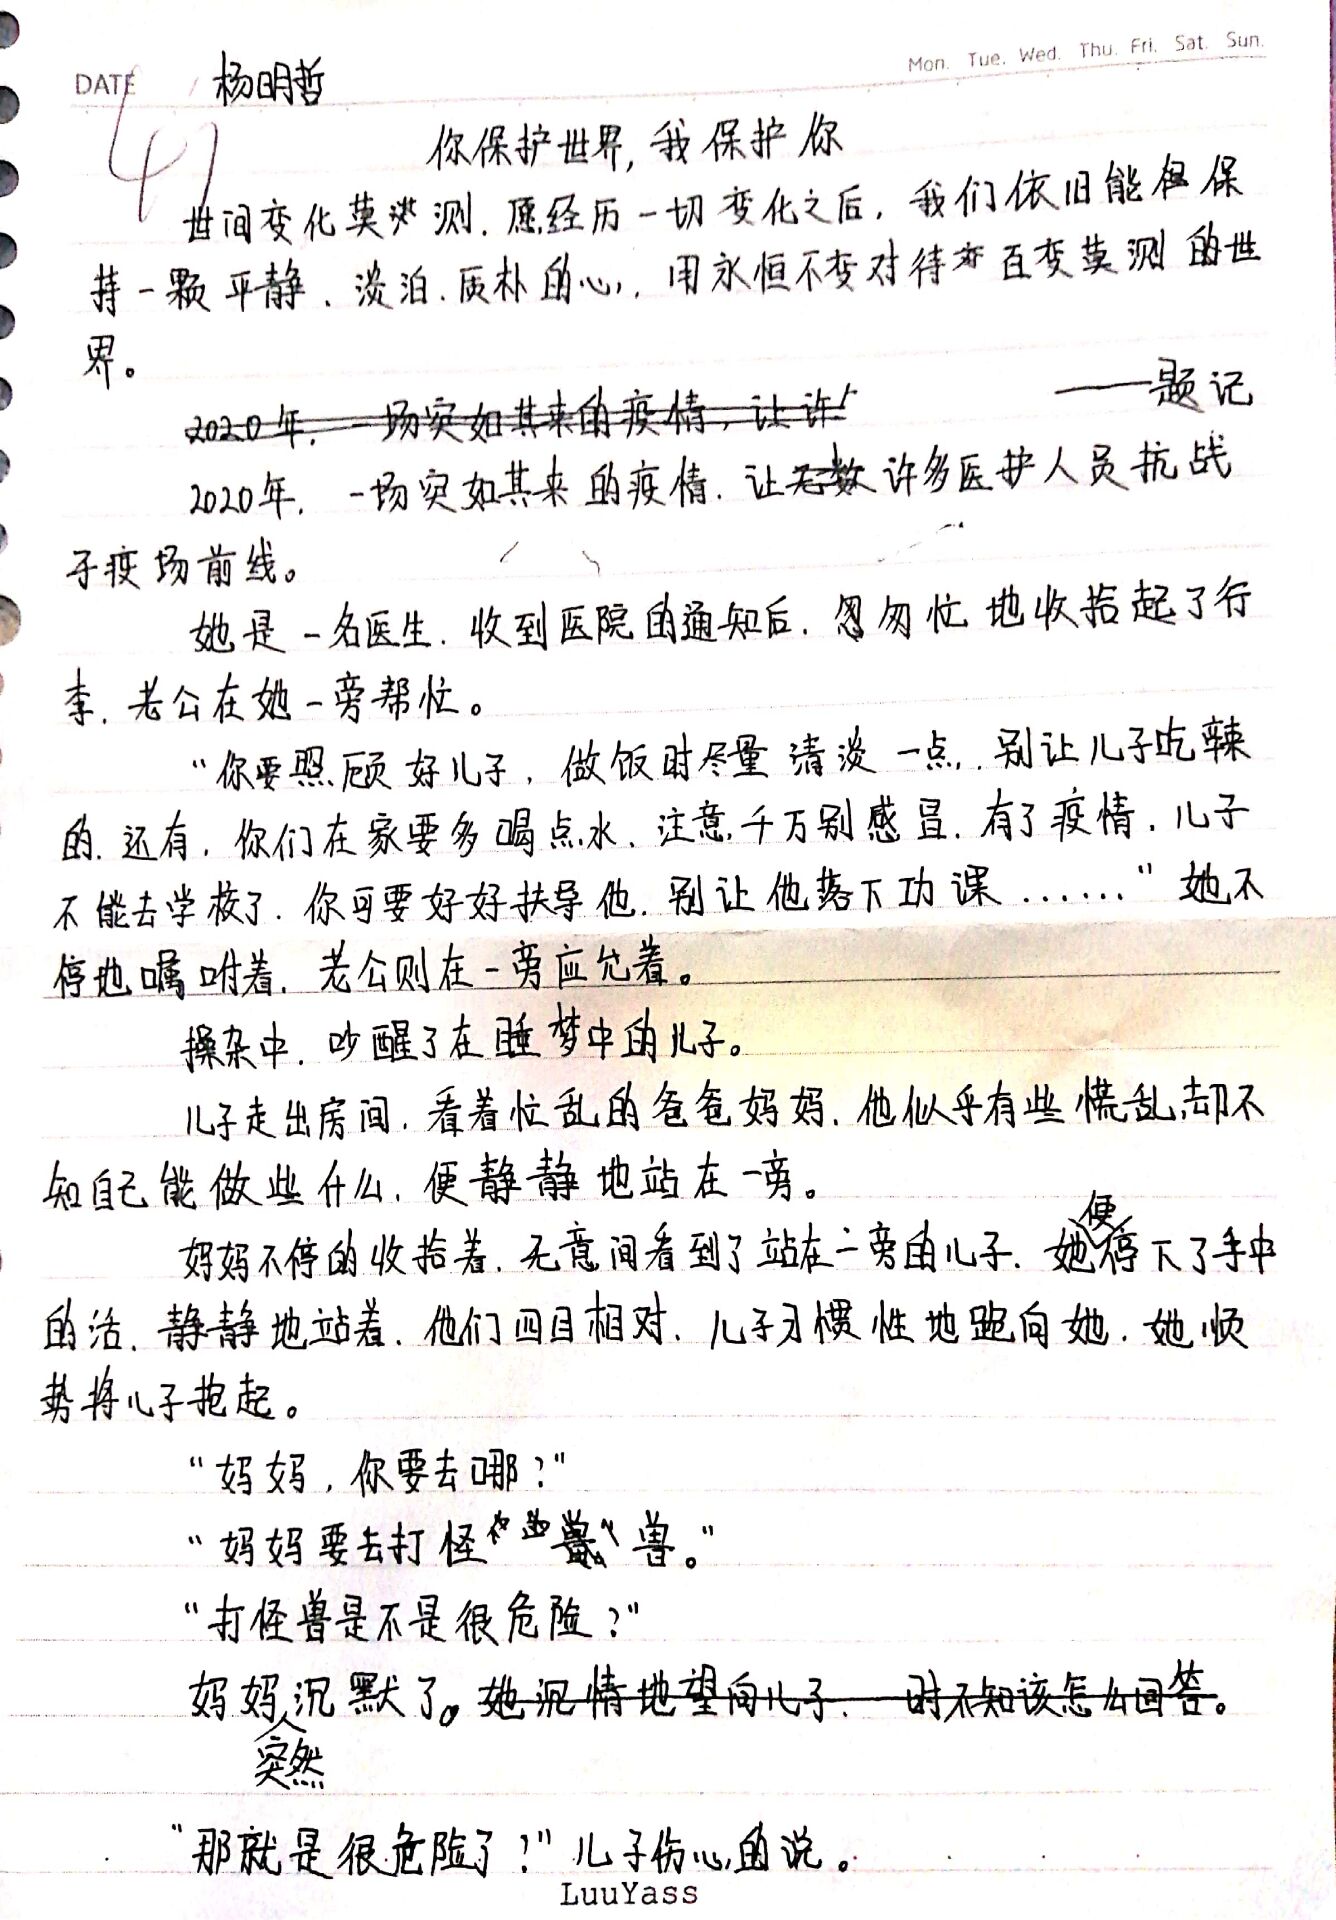 Mon. Tue. Wed. Thu. Fri. Sat. Sun.
DATE / 杨明哲
47
你保护世界，我保护你
世间变化莫测.愿经历一切变化之后，我们依旧能保
持一颗平静、淡泊、质朴的心，用永恒不变对待百变莫测的世
界。
——题记
2020年，一场突如其来的疫情，让许
2020年，一场突如其来的疫情，让无数许多医护人员抗战
于疫场前线。
她是一名医生，收到医院的通知后，忽匆忙地收拾起了行
李，老公在她一旁帮忙。
“你要照顾好儿子，做饭时尽量清淡一点，别让儿子吃辣
的，还有，你们在家要多喝点水，注意，千万别感冒，有了疫情，儿子
不能去学校了，你可要好好扶导他，别让他落下功课……”她不
停地嘱咐着，老公则在一旁应允着。
操杂中，吵醒了在睡梦中的儿子。
儿子走出房间，看着忙乱的爸爸妈妈，他似乎有些慌乱，却不
知自己能做些什么，便静静地站在一旁。
妈妈不停的收拾着，无意间看到了站在一旁的儿子，她便停下了手中
的活，静静地站着，他们四目相对，儿子习惯性地跑向她，她顺
势将儿子抱起。
“妈妈，你要去哪？”
“妈妈要去打怪兽。”
“打怪兽是不是很危险？”
妈妈突然沉默了。她沉情地望向儿子，一时不知该怎么回答。
“那就是很危险了？”儿子伤心的说。
LuuYass